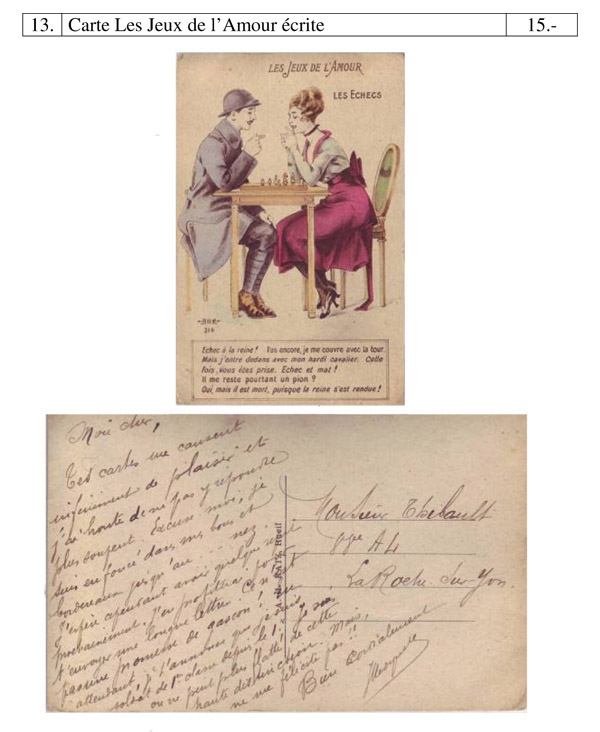 13. Carte Les Jeux de l'Amour écrite 15.-
LES JEUX DE L'AMOUR
LES ECHECS
214
Echec à la reine! Pas encore, je me couvre avec la tour.
Mais j'entre dedans avec mon hardi cavalier. Cette
fois, vous êtes prise. Echec et mat!
Il me reste pourtant un pion?
Oui, mais il est mort, puisque la reine s'est rendue!
Mon cher,
Tes cartes me causent
infiniment de plaisir et
j'ai honte de ne pas y répondre
plus souvent. Excuse moi, je
suis enfoncé dans mes bous et
bordereaux jusqu'au... nez.
J'espère cependant avoir quelque répit
prochainement. J'en profiterai pour
t'envoyer une longue lettre. Ce n'est
pas une promesse de gascon! En
attendant, je t'annonce que je suis
soldat de 1e classe depuis le 1.
on ne peut plus flatté de cette
haute distinction. Mais,
ne me félicite pas!!
Bien cordialement
Monsieur Thibault
A4
La Roche-sur-Yon